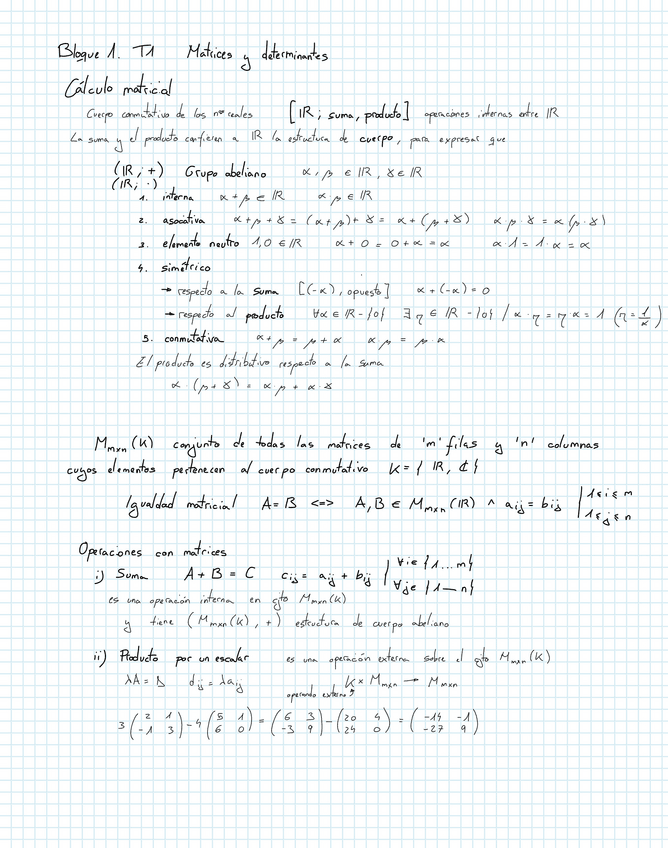 Bloque 1. T1 Matrices y determinantes
Cálculo matricial
Cuerpo conmutativo de los nº reales [ℝ; suma, producto] operaciones internas entre ℝ
La suma y el producto confieren a ℝ la estructura de cuerpo, para expresar que
(ℝ; +) Grupo abeliano α, β ∈ ℝ, γ ∈ ℝ
(ℝ; ·)
1. interna α + β ∈ ℝ α β ∈ ℝ
2. asociativa α + β + γ = (α + β) + γ = α + (β + γ) α β · γ = α (β · γ)
3. elemento neutro 1, 0 ∈ ℝ α + 0 = 0 + α = α α · 1 = 1 · α = α
4. simétrico
→ respecto a la suma [(-α), opuesto] α + (-α) = 0
→ respecto al producto ∀α ∈ ℝ - {0} ∃ η ∈ ℝ - {0} / α · η = η · α = 1 (η = 1/α)
5. conmutativa α + β = β + α α β = β · α
El producto es distributivo respecto a la suma
α · (β + γ) = α · β + α · γ
Mmxn (K) conjunto de todas las matrices de 'm' filas y 'n' columnas
cuyos elementos pertenecen al cuerpo conmutativo K = { ℝ, ℂ }
Igualdad matricial A = B <=> A, B ∈ Mmxn (ℝ) ∧ aij = bij | 1 ≤ i ≤ m
1 ≤ j ≤ n
Operaciones con matrices
i) Suma A + B = C cij = aij + bij | ∀i ∈ {1...m}
∀j ∈ {1—n}
es una operación interna en cjto Mmxn (K)
y tiene (Mmxn (K), +) estructura de cuerpo abeliano
ii) Producto por un escalar es una operación externa sobre el cjto Mmxn (K)
λA = D dij = λaij K × Mmxn → Mmxn
operando externo
3 (2 1 / -1 3) - 4 (5 1 / 6 0) = (6 3 / -3 9) - (20 4 / 24 0) = (-14 -1 / -27 9)